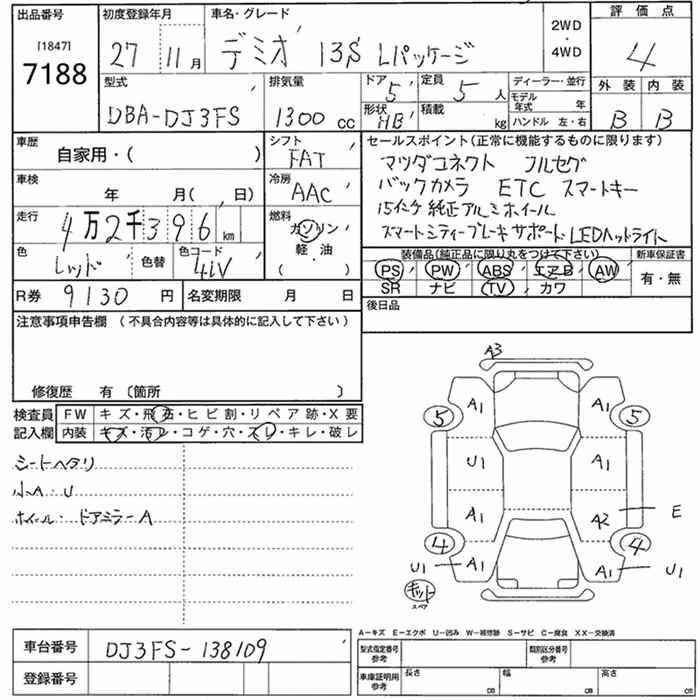 出品番号 初度登録年月 車名・グレード 2WD 評価点
[1847] 7188 27 11月 デミオ 13S Lパッケージ ・ 4WD 4
型式 排気量 ドア 5 定員 5人 ディーラー・並行 外装 内装
DBA-DJ3FS 1300 cc 形状 HB 積載 kg モデル年式 年 ハンドル 左・右 B B
車歴 シフト セールスポイント(正常に機能するものに限ります)
自家用・( ) FAT マツダコネクト フルセグ
車検 冷房 バックカメラ ETC スマートキー
年 月( , 日) AAC 15インチ純正アルミホイール
走行 燃料 スマートシティーブレーキサポート LEDヘットライト
4万2千396 km ガソリン
色 色替 色コード 軽・油 装備品(純正品に限り丸をつけて下さい) 新車保証書
レッド 41V ( ・ ) PS PW ABS エアB AW 有・無
SR ナビ TV カワ
R券 9130 円 名変期限 月 日 後日品
注意事項申告欄 (不具合内容等は具体的に記入して下さい)
修復歴 有 〔箇所 〕
検査員 FW キズ・飛石・ヒビ割・リペア跡・X要
記入欄 内装 キズ・汚レ・コゲ・穴・スレ・キレ・破レ
シートヘタリ
小A・U
ホイール・ドアミラーA
A3
A1 A1
5 5
U1 A1
A1 A2 E
4 4
U1 A1 A1 U1
キット
スペア
A-キズ E-エクボ U-凹み W-補修跡 S-サビ C-腐食 XX-交換済
車台番号 DJ3FS-138109 型式指定番号 参考 類別区分番号 参考
登録番号 車庫証明用 参考 長さ cm 幅 cm 高さ cm